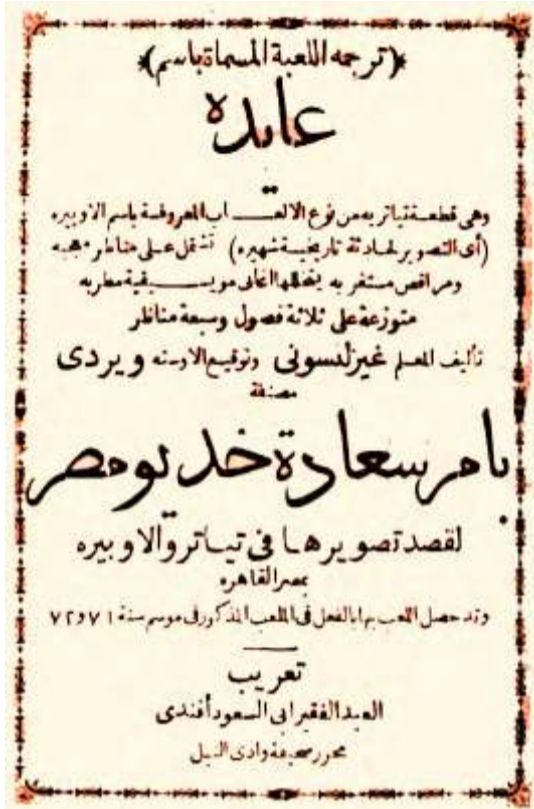 (ترجمه اللعبة المسماة باسم)
عايدة
وهى قطعة تياتريه من نوع الالعاب المعروفة باسم الاوبيره
(أى التصوير لحادثة تاريخية شهيره) تشتمل على مناظر مهجبه
ومراقص مستغربه يتخللها اغانى مويسيقية مطربه
متوزعة على ثلاثة فصول وسبعة مناظر
تأليف المعلم غيزلنسونى وتوقيع الاوسته ويردى
مصنفة
بامر سعادة خديو مصر
لقصد تصويرها فى تياترو الاوبيره
بمصر القاهره
وقد حصل اللعب بها بالفعل فى الملعب المذكور فى موسم سنة ٧١ و٧٢
تعريب
العبد الفقير ابى السعود أفندى
محرر صحيفة وادى النيل